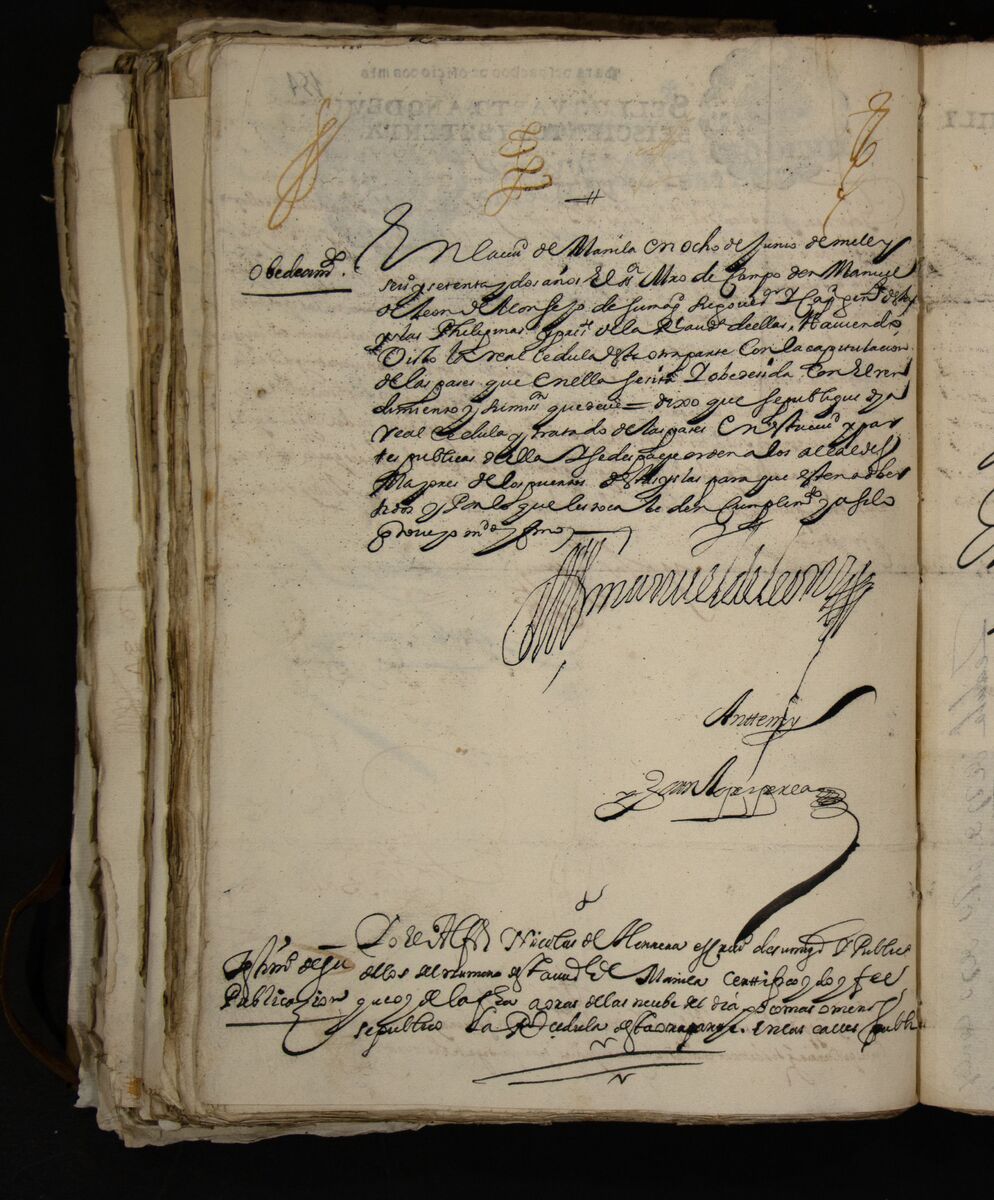 Obedecimto.
En la ciud de Manila en ocho de Junio de mil y
seisos setenta y dos años El sr Mro de Campo don Manuel
de Leon del Consejo de su magd su govor Y Capn genl destas
yslas Philipinas y prest de la Rl audª de ellas, Haviendo
Visto la real Cedula desta otra parte Con la capitulacion
de las pases que en ella se cita Y obedesida Con el ren
dimiento y sumisson que deve = dixo que se publique dha
real Cedula y tratado de las pases En esta ciud y par
tes publicas de ella Y se despache orden a los alcaldes
Mayores de los puertos destas yslas para que esten adber
tidos y Por lo que les toca le den Cumplimto y asi lo
proveyo mdo y firmo
Manuel de Leon
Ante mi
Juan
Testimo de su
Publicazion
Yo el Alfz Nicolas de Herrera essno de su magd Y Publico
de los del numero desta ciud de Manila Certtifico y doy fee
que oy dia de la fha a oras de las nuebe del dia poco mas o menos
se publico La Rl Cedula desta otra parte. En las calles Publi